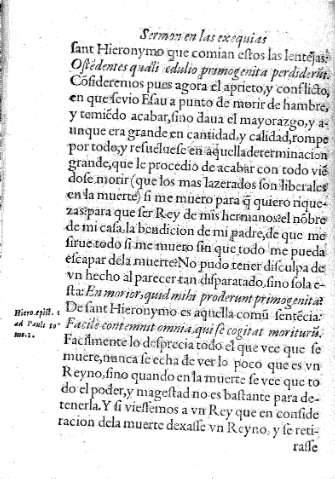 Sermon en las exequias
sant Hieronymo que comian estos las lentejas:
Ostẽdentes quali edulio primogenita perdiderũt.
Cõsideremos pues agora el aprieto, y conflicto,
en que se vio Esau a punto de morir de hambre,
y temiẽdo acabar, sino daua el mayorazgo, y a-
unque era grande en cantidad, y calidad, rompe
por todo, y resueluese en aquella determinacion
grande, que le procedio de acabar con todo viẽ
dose morir (que los mas lazerados son liberales
en la muerte) si me muero para q̃ quiero rique-
zas: para que ser Rey de mis hermanos: el nõbre
de mi casa, la bendicion de mi padre, de que me
sirue todo si me muero sin que todo me pueda
escapar dela muerte? No pudo tener disculpa de
vn hecho al parecer tan disparatado, sino sola e-
sta: En morior, quid mihi proderunt primogenita?
De sant Hieronymo es aquella comũ sentẽcia:
Hiero. epist. 1
ad Pauli. to
mo. 1.
Facilè contemnit omnia, qui se cogitat moriturũ.
Facilmente lo desprecia todo el que vee que se
muere, nunca se echa de ver lo poco que es vn
Reyno, sino quando en la muerte se vee que to
do el poder, y magestad no es bastante para de-
tenerla. Y si viessemos a vn Rey que en conside
racion dela muerte dexasse vn Reyno, y se reti-
rasse vn